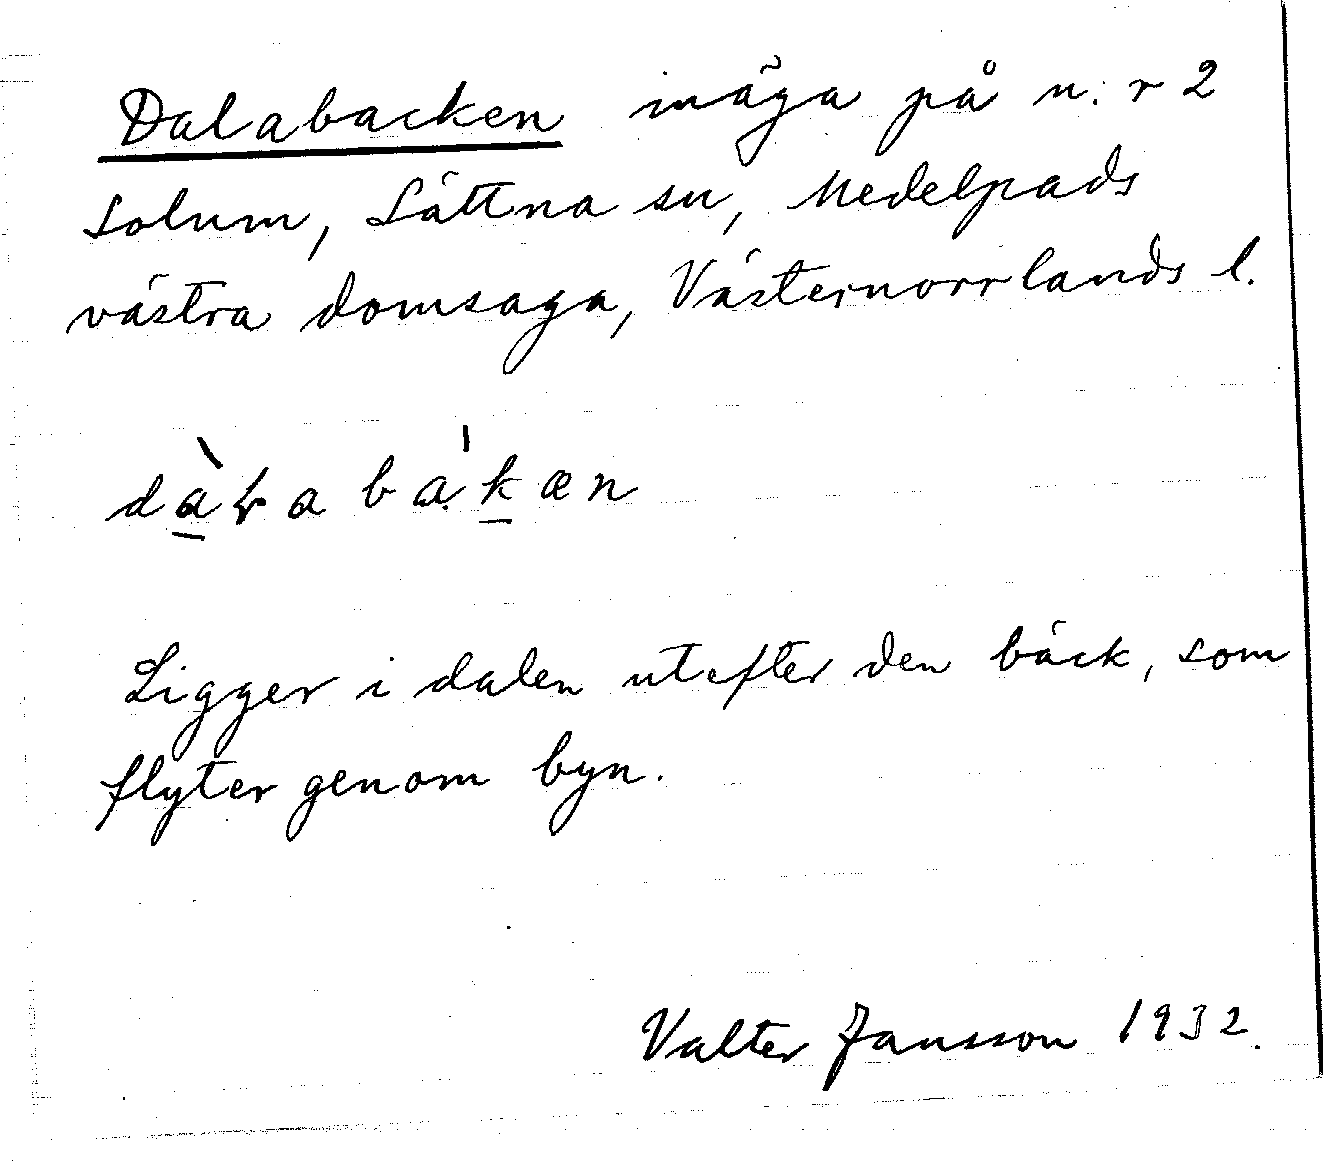 Dalabacken inäga på n:r 2
Solum, Sättna sn, Medelpads
västra domsaga, Västernorrlands l.
dàɽabákæn
Ligger i dalen utefter den bäck, som
flyter genom byn.
Valter Jansson 1932.